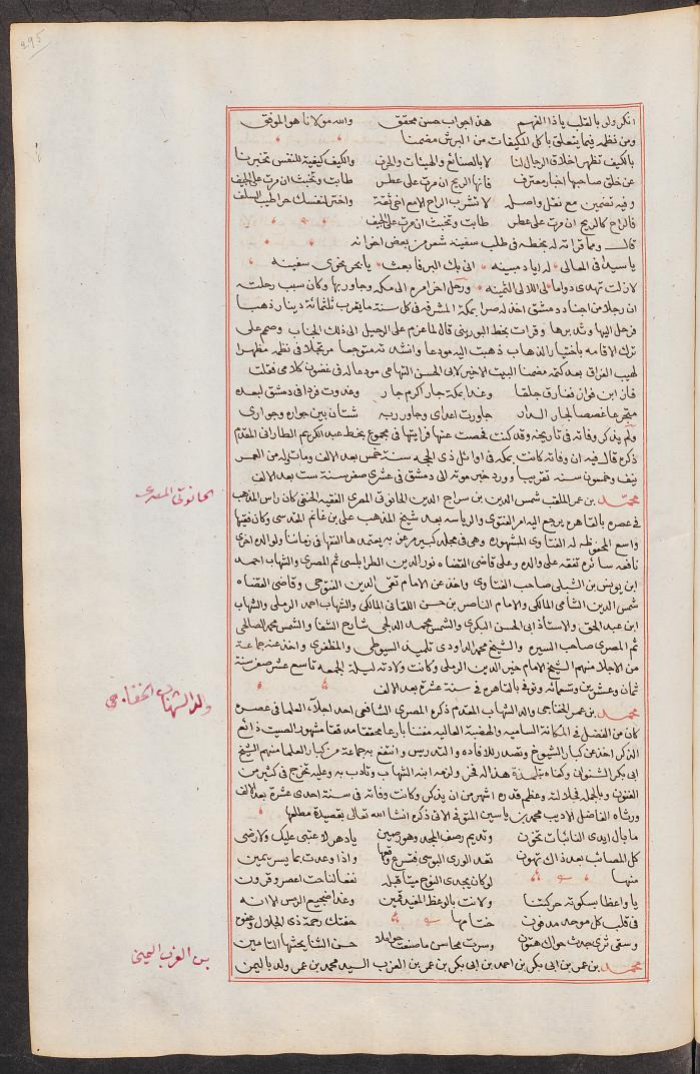 295
انكر ولى بالقلب ياذا الفهم هذا جواب حسن محقق والله مولانا هو الموفق
ومن نظمه فيما يتعلق باكل المكيفات من البرش مضمنا
بالكيف تظهر اخلاق الرجال لنا لا بالصنائع والهيئات والحرف والكيف كيفية للنفس تخبرنا
عن خلق صاحبها اخبار معترف فانها الريح ان مرت على عطر طابت وتخبث ان مرت على الجيف
وفيه تضمين مع نقل واصله لا تشرب الراح الا مع اخى ثقة واختر لنفسك حرا طيب السلف
فالراح كالريح ان مرت على عطر طابت وتخبث ان مرت على الجيف
قال ومما قرأته له بخطه فى طلب سفينة شعر من بعض اخوانه
يا سيدا فى المعالى له اياد مبينه انى بك البر فابعث يا بحر نحوى سفينه
لازلت تهدى دواما لى اللالى الثمينه ورحل اخر امره الى مكه وجاور بها وكان سبب رحلته
ان رجلا من اجناد دمشق اخذ له صرا بمكة المشرفه فى كل سنة ما يقرب ثلثمائة دينار ذهبا
فرحل اليها وتديرها وقرات بخط البورينى قال لما عزم على الرحيل الى ذلك الجناب وصمم على
ترك الاقامه باختيار الذهاب ذهبت اليه مودعا وانشدته متوجعا مرتجلا فى نظمه مظهرا
لهيب الفراق بعد كتمه مضمنا البيت الاخير لابى الحسن التهامى مودعا له فى غضون كلامى فقلت
فان ابن فواز ففارق جلقا وغدا بمكة جار اكرم جار وغدوت فردا فى دمشق لبعده
متجرعا غصصا لجار الدار جاورت اعداى وجاور ربه شتان بين جواره وجوارى
ولم يذكر وفاته فى تاريخه وقد كنت فحصت عنها فرايتها فى مجموع بخط عبد الكريم الطارانى المقدم
ذكره قال فيه ان وفاته كانت بمكة فى اوائل ذى الحجه سنة خمس بعد الالف ومات وله من العمر
نيف وخمسون سنه تقريبا وورد خبر موته الى دمشق فى عشرى صفر سنة ست بعد الالف
الحانوتى المصرى
محمد بن عمر الملقب شمس الدين بن سراج الدين الحانوتى المصرى الفقيه الحنفى كان راس المذهب
فى عصره بالقاهره يرجع اليه امر الفتوى والرياسه بعد شيخ المذهب على بن غانم المقدسى وكان فقيها
واسع المحفوظ له الفتاوى المشهوره وهى فى مجلد كبير مرغوبه يعتمدها الفقها فى زماننا ولوالده اخرى
نافعه سائره تفقه على والده وعلى قاضى القضاه نور الدين الطرابلسى ثم المصرى والشهاب احمد
ابن يونس بن الشبلى صاحب الفتاوى واخذ عن الامام تقى الدين الفتوحى وقاضى القضاه
شمس الدين الشامى المالكى والامام الناصر بن حسن اللقانى المالكى والشهاب احمد الرملى والشهاب
ابن عبد الحق والاستاذ ابى الحسن البكرى والشمس محمد الدلجى شارح الشفا والشمس محمد الصالحى
ثم المصرى صاحب السيره والشيخ محمد الداودى تلميذ السيوطى والمظفرى واخذ عنه جماعة
من الاجلا منهم الشيخ الامام خير الدين الرملى وكانت ولادته ليلة الجمعه تاسع عشر صفر سنة
ثمان وعشرين وتسعمائه وتوفى بالقاهره فى سنة عشرة بعد الالف
والد الشهاب الخفاجى
محمد بن عمر الخفاجى والد الشهاب المقدم ذكره المصرى الشافعى احد اجلاء العلما فى عصره
كان من الفضل فى المكانة الساميه والهضبة العاليه مفننا بارعا محققا مدققا مشهور الصيت ذائع
الذكر اخذ عن كبار الشيوخ وتصدر للافاده والتدريس وانتفع به جماعة من كبار العلما منهم الشيخ
ابى بكر الشنوانى وكفاه بتلمذة هذا له فخرا ولزمه ابنه الشهاب وتادب به وعليه تخرج فى كثير من
الفنون وبالجمله فجلالته وعظم قدره اشهر من ان يذكر وكانت وفاته فى سنة احدى عشرة بعد الالف
ورثاه الفاضل الاديب محمد بن ياسين المنوفى الاتى ذكره انشا الله تعالى بقصيدة مطلعها
ما بال ايدى النائبات تخون وتديم رصف المجد وهو رصين يا دهر لا عتبى عليك ولا رضى
كل المصائب بعد ذاك تهون تغد الورى البوسى فتسرع وقعها واذا وعدت بما يسر يمين
منها لو كان يجدى النوح ميتا قبله نفعا لناحت اعصر وقرون
يا واعظا بسكوته حركتنا ولانت بالوعظ المفيد قمين وغدا ضجيع الرمس الا انه
فى قلب كل موحد مدفون ختامها حفتك رحمة ذى الجلال وعفوه
وسقى ثرى جدث حواك هتون وسرت محاسن ما صنعت جميلا حسن الثنا يحثها التامين
بن العرب اليمنى
محمد بن عمر بن ابى بكر بن احمد بن ابى بكر بن عمر بن العرب السيد محمد بن عمر ولد باليمن